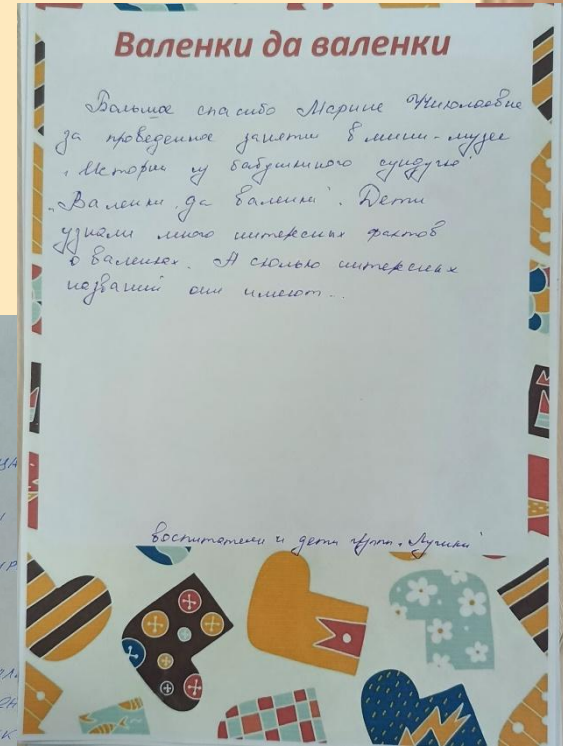 Валенки да валенки
Большое спасибо Марине Николаевне
за проведенное занятие в мини-музее
"Истории из бабушкиного сундучка"
"Валенки да валенки". Дети
узнали много интересных фактов
о валенках. А сколько интересных
названий они имеют...
воспитатели и дети групп. "Лучики"